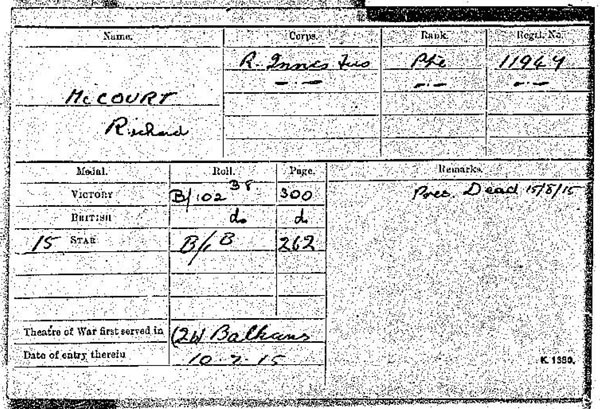 Name. Corps. Rank. Regtl. No.
R. Innis Fus Pte 11949
McCOURT
Richard
Medal. Roll. Page. Remarks.
VICTORY B/102 B8 300 Pres. Dead 15/8/15
BRITISH do do
15 STAR B/1 B 262
Theatre of War first served in (2B) Balkans
Date of entry therein 10-7-15
K. 1380.